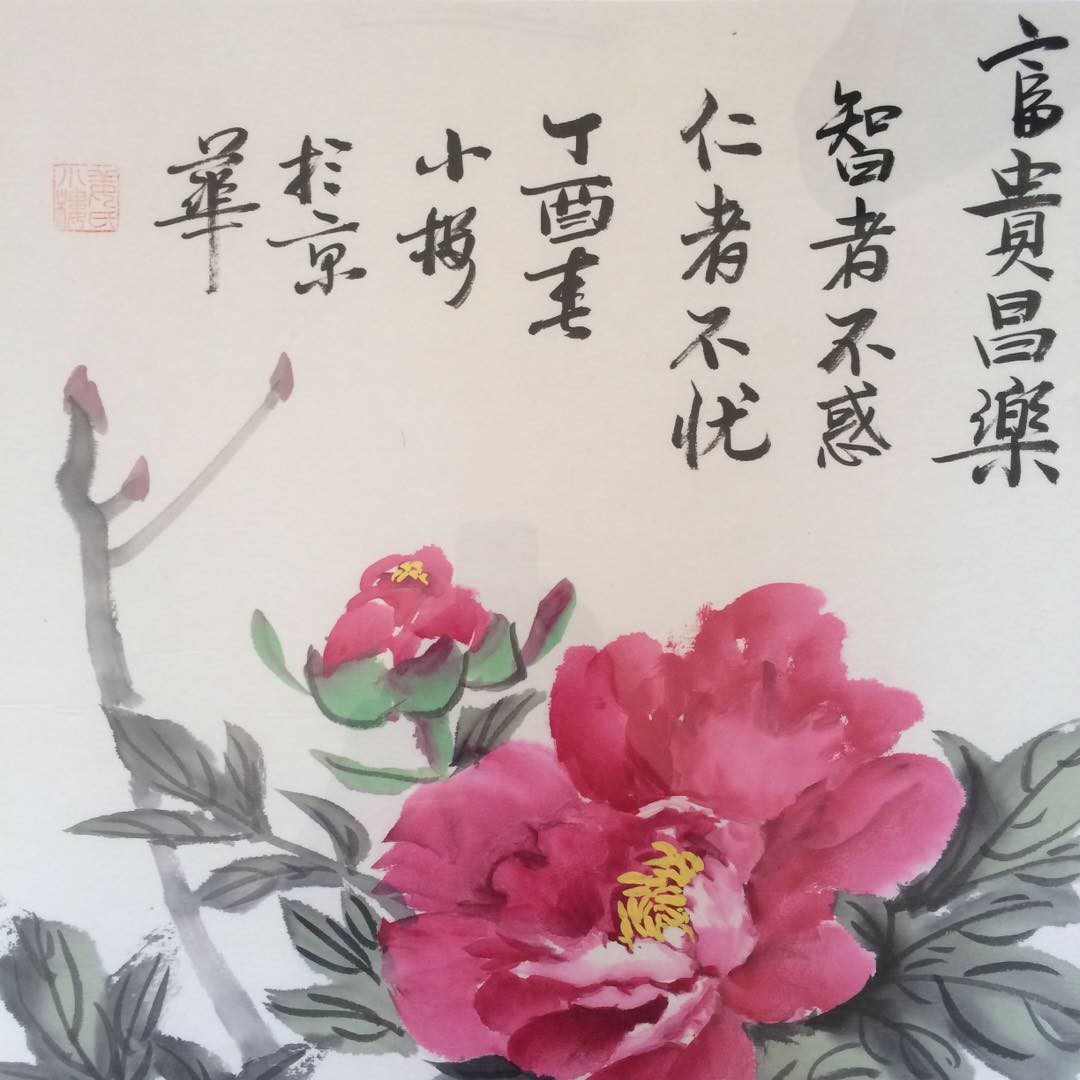 富貴昌樂
智者不惑
仁者不忧
丁酉春
小樓
於京
華